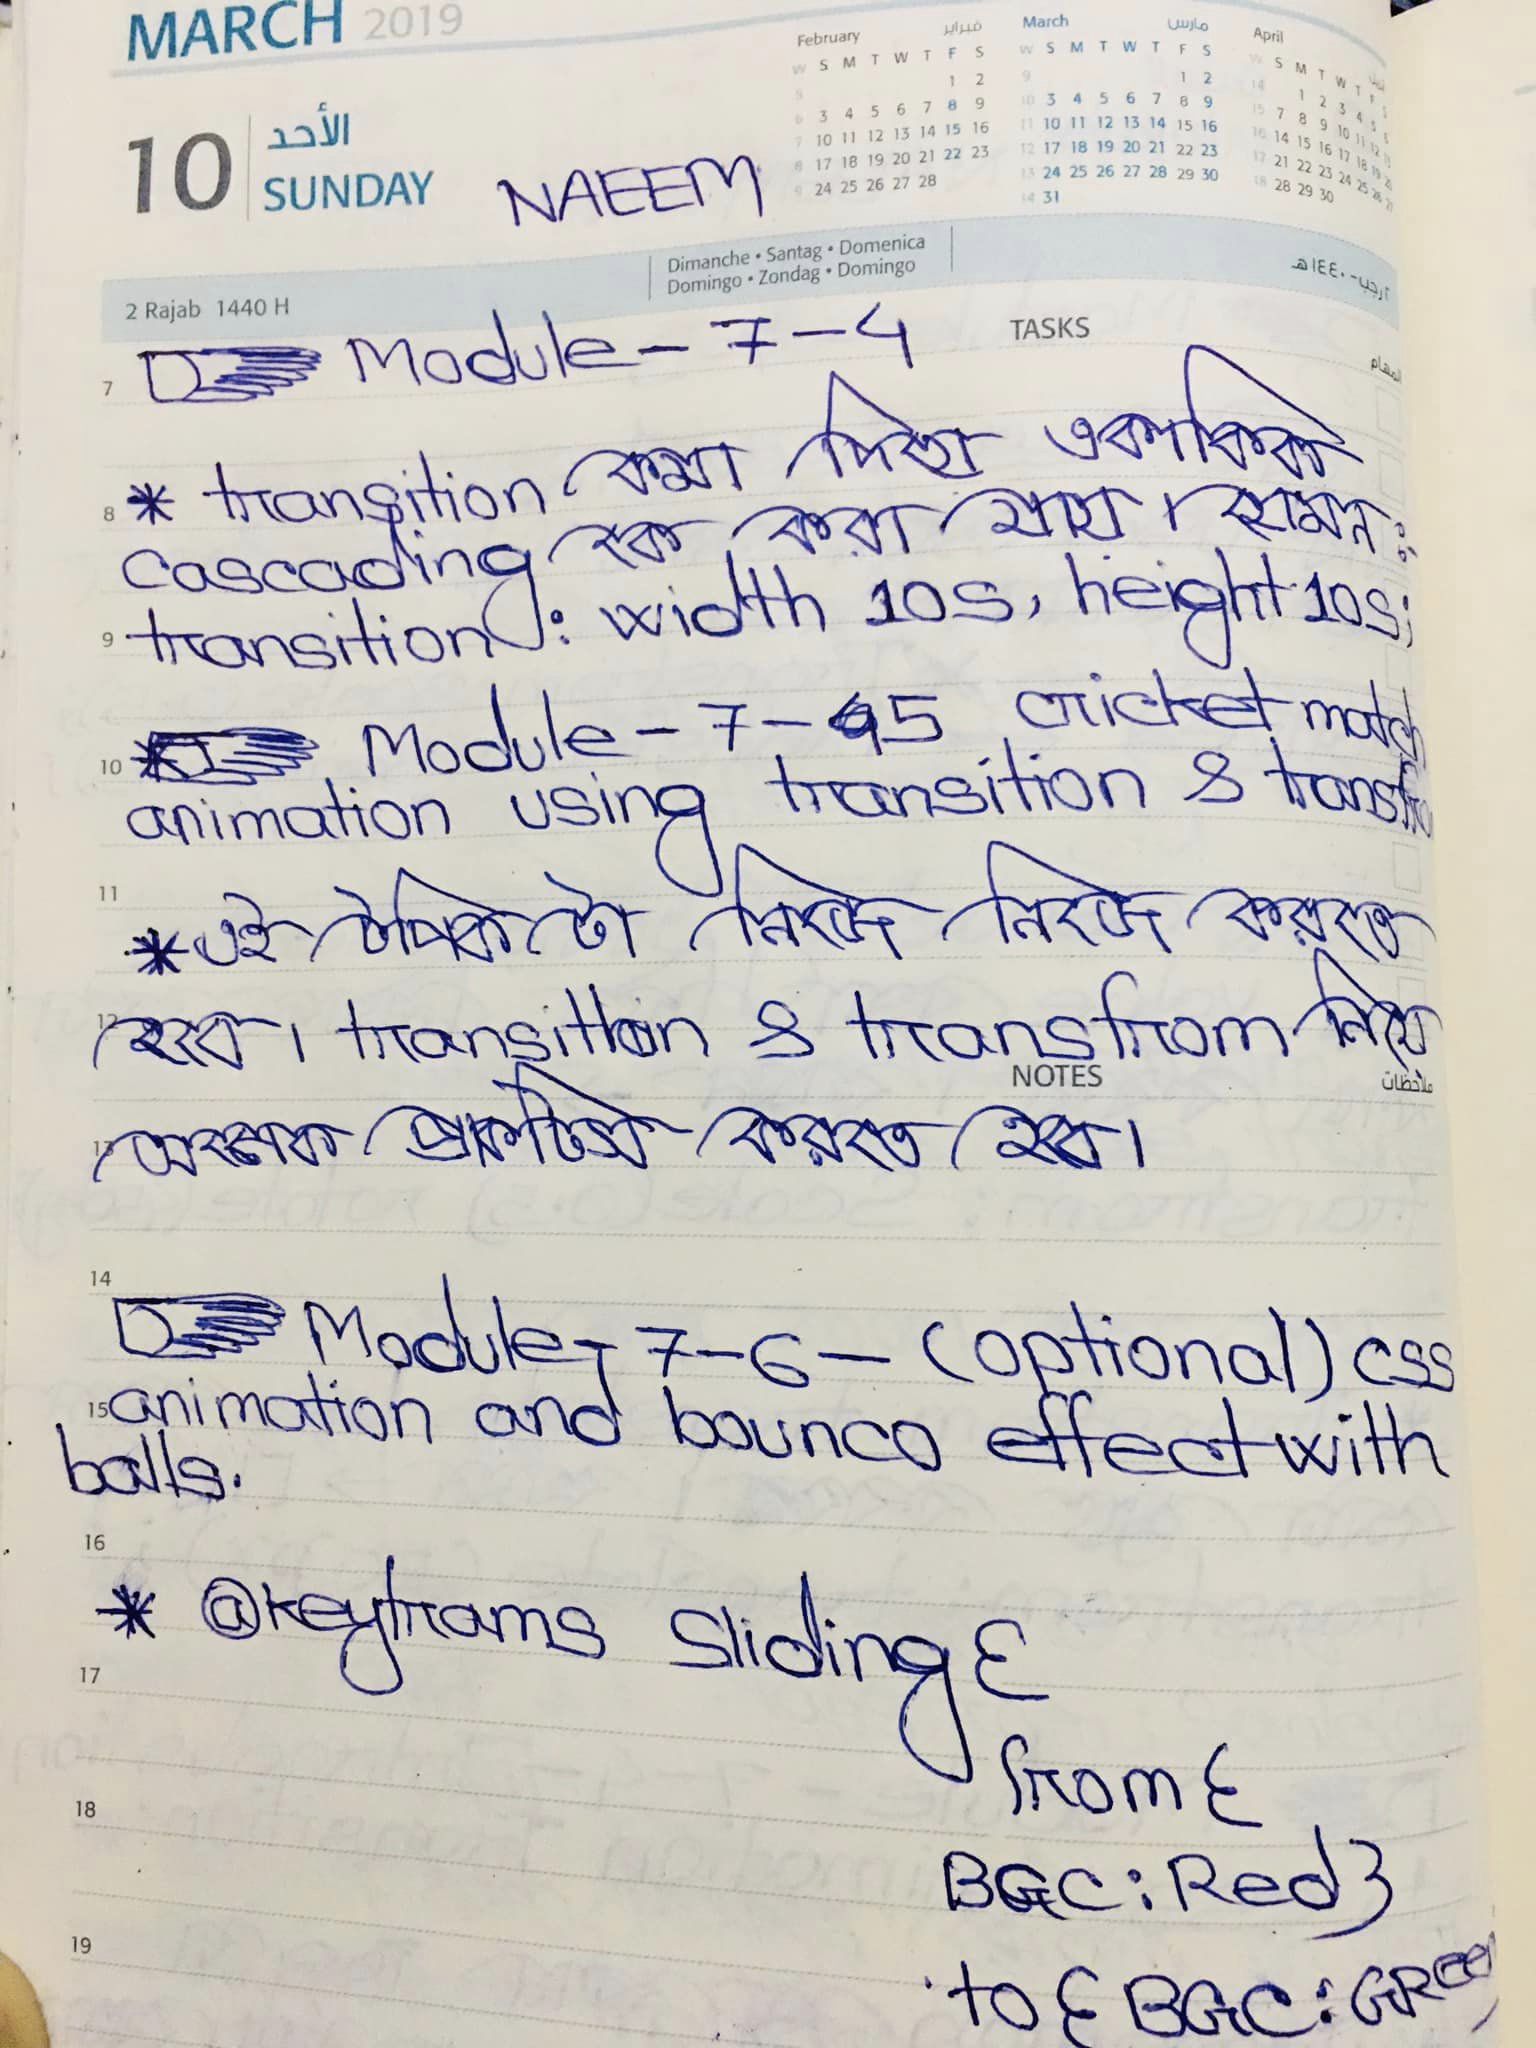 MARCH 2019
10 الأحد
SUNDAY
NAEEM
February فبراير
W S M T W T F S
5 1 2
6 3 4 5 6 7 8 9
7 10 11 12 13 14 15 16
8 17 18 19 20 21 22 23
9 24 25 26 27 28
March مارس
W S M T W T F S
9 1 2
10 3 4 5 6 7 8 9
11 10 11 12 13 14 15 16
12 17 18 19 20 21 22 23
13 24 25 26 27 28 29 30
14 31
April
W S M T W T F S
14 1 2 3 4 5
15 7 8 9 10 11 12 13
16 14 15 16 17 18 19 20
17 21 22 23 24 25 26 27
18 28 29 30
Dimanche • Santag • Domenica
Domingo • Zondag • Domingo
2 Rajab 1440 H
٢ رجب - ١٤٤٠ هـ
TASKS
المهام
7 Module - 7 - 4
8 * transition কমা দিয়া একাধিক
cascading করা যায়। যেমন:
9 transition: width 10s, height 10s;
10 Module - 7 - 5 cricket match
animation using transition &
11 * এই টপিকটা নিজে নিজে করতে
12 হবে। transition & transfrom নিয়ে
NOTES
ملاحظات
13 অনেক প্রাকটিস করতে হবে।
14 Module - 7 - 6 - (optional) css
15 animation and bounco effect with
balls.
16
* @keyframs Sliding {
17
from {
18
BGC : Red }
19
to { BGC : GReen